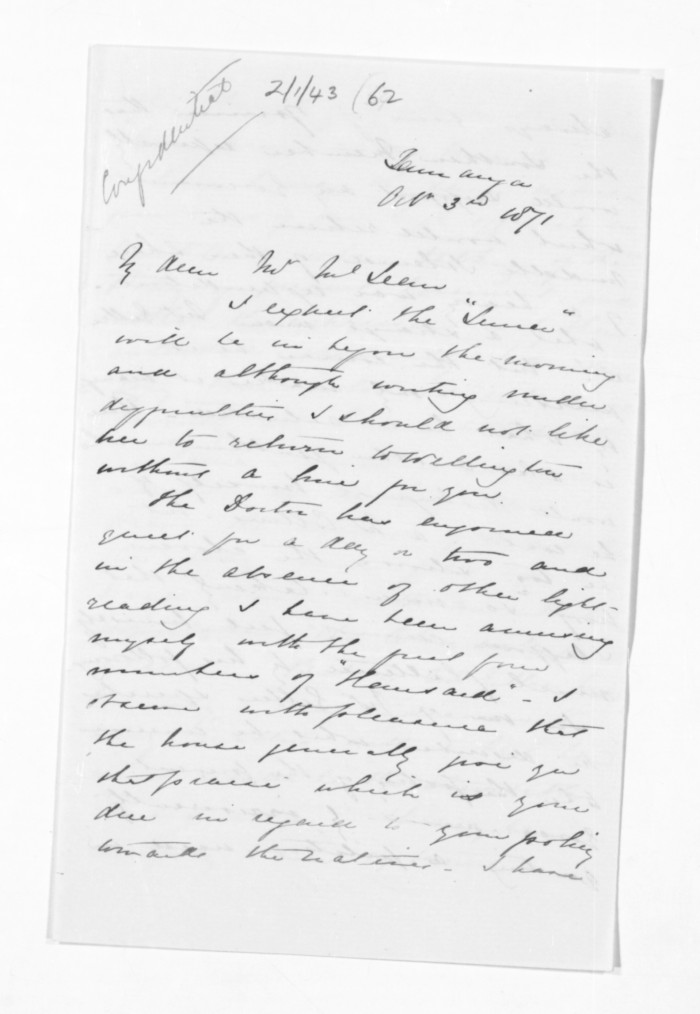 Confidential
2/1/43 (62
Tauranga
Octr 3rd 1871
My dear Mr McLean
I expect the "Luna"
will be in before the morning
and although writing under
difficulties I should not like
her to return to Wellington
without a line for you.
The Doctor has enjoined
quiet for a day or two and
in the absence of other light-
reading I have been amusing
myself with the first four
numbers of "Hansard" - I
observe with pleasure that
the house generally give you
the praise which is your
due in regard to your policy
towards the natives - I have